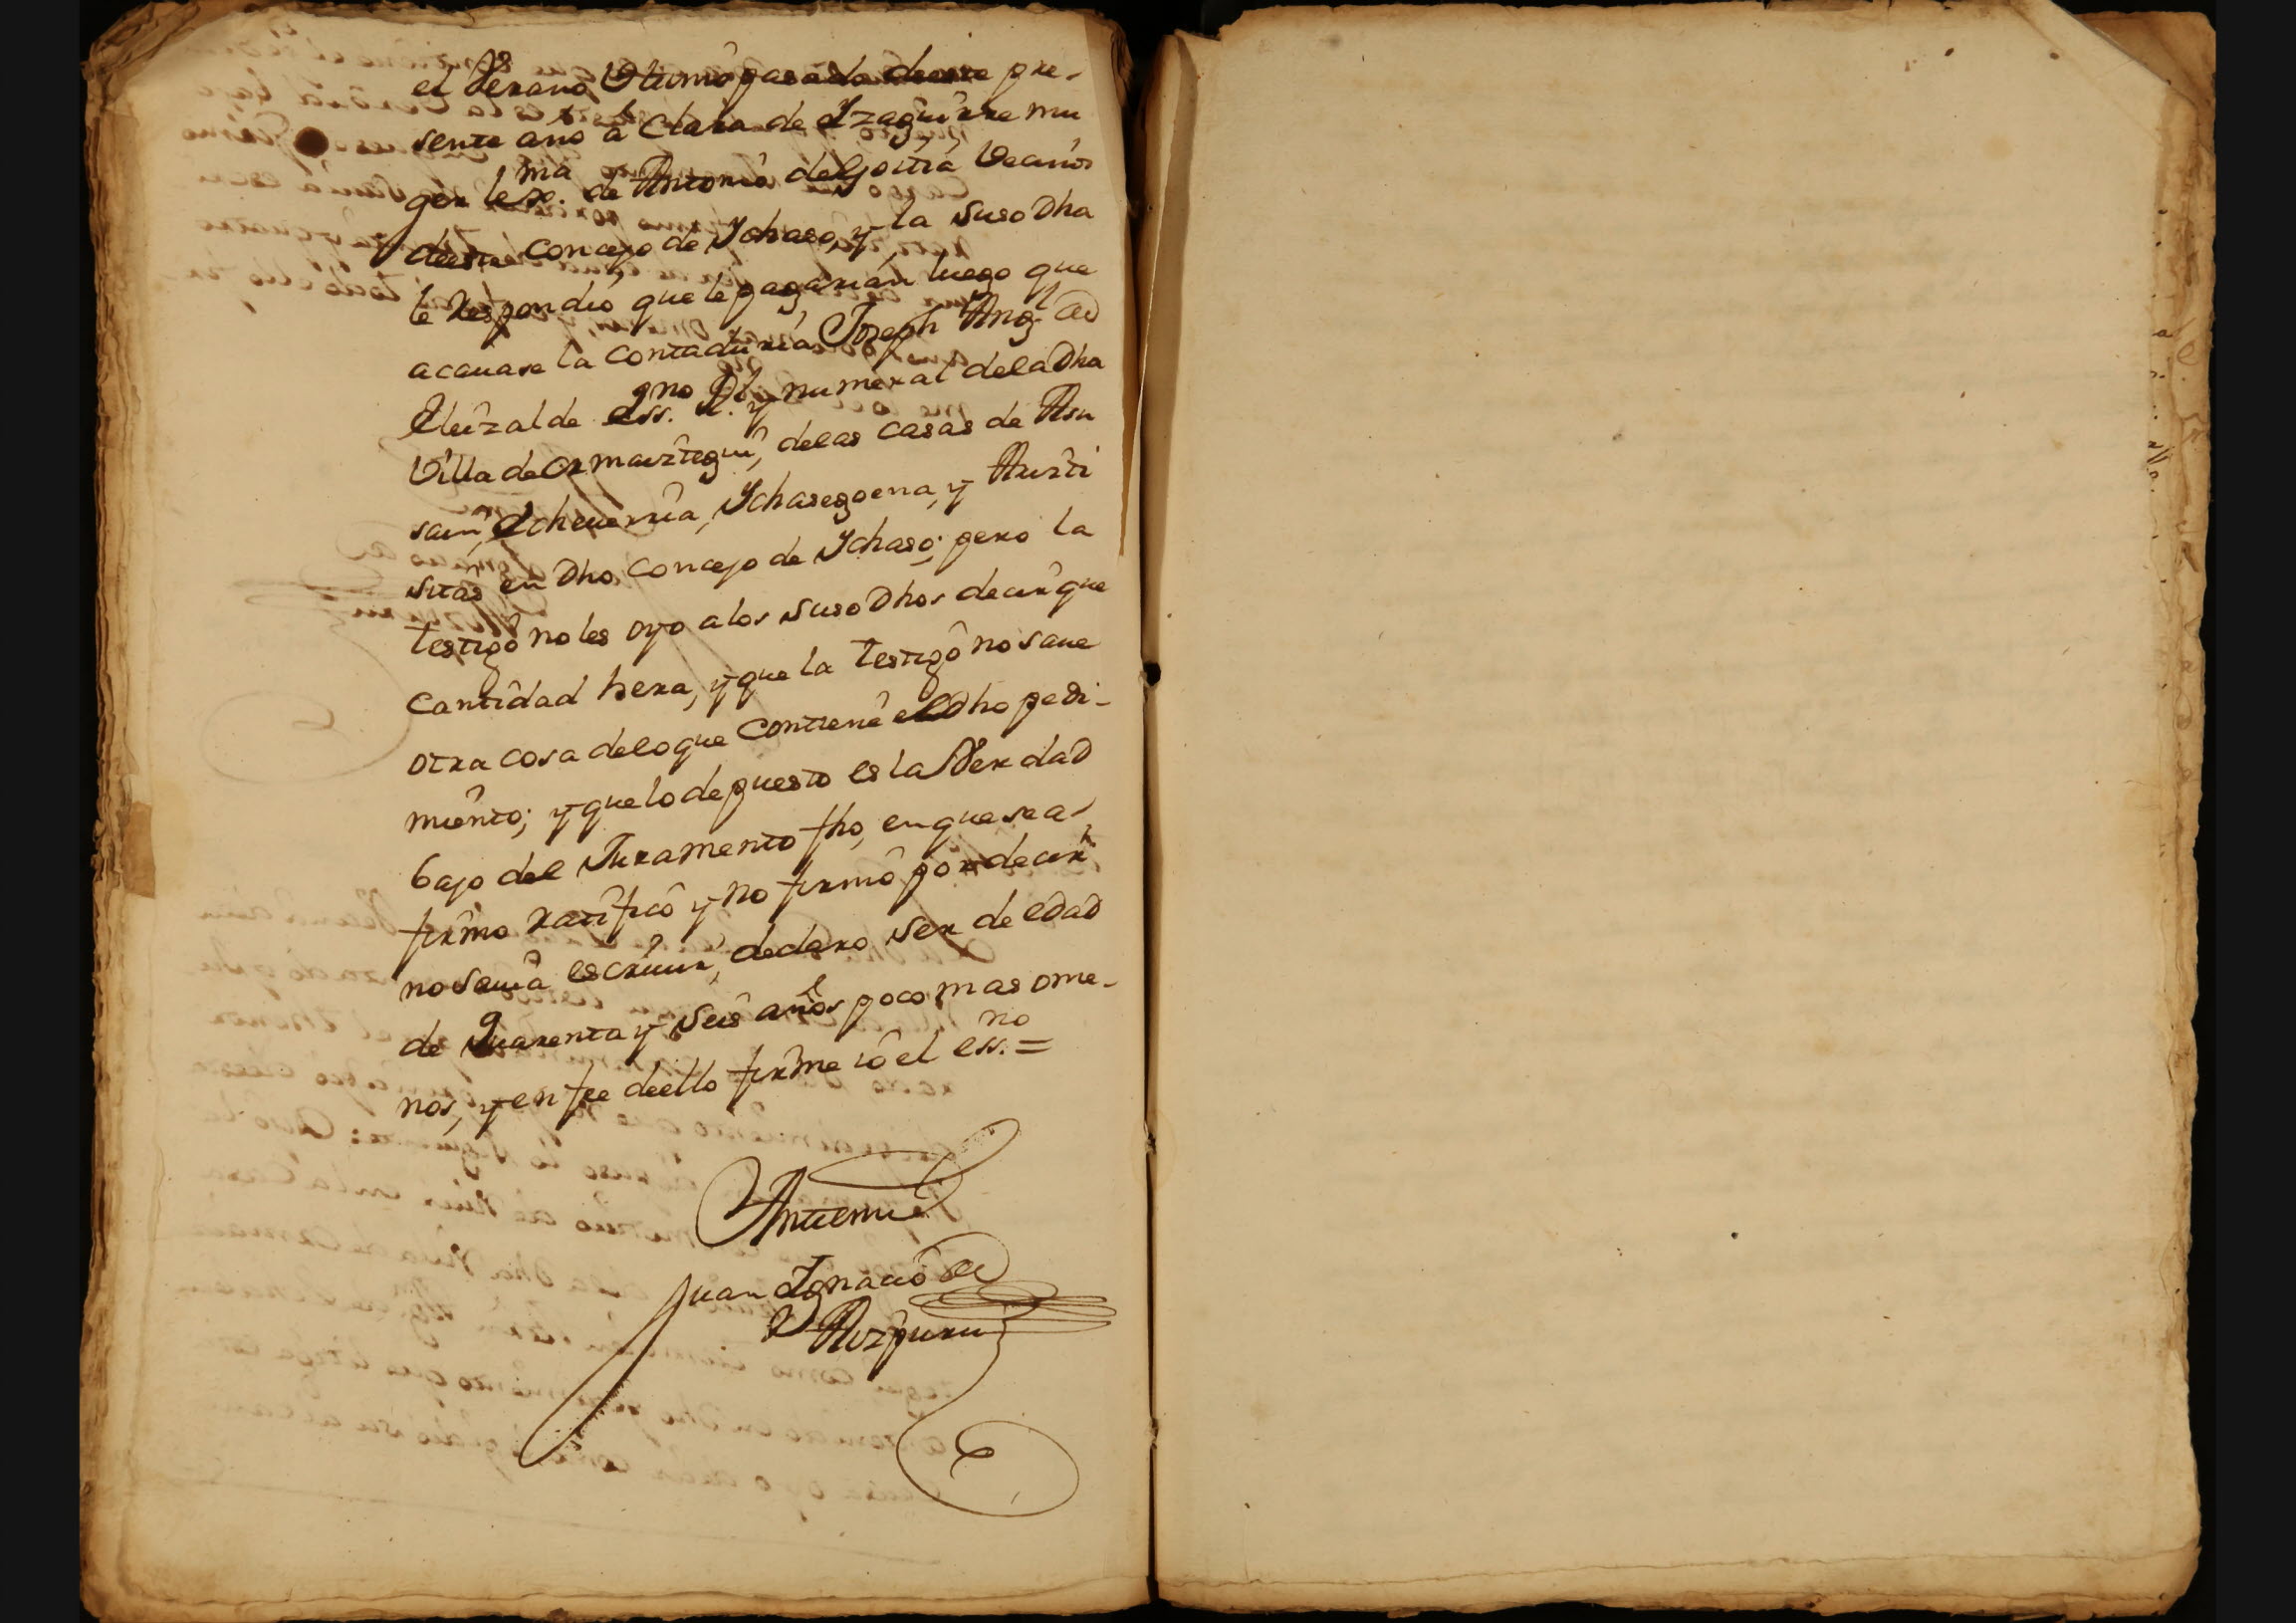 el Verano Vltimo pasado deeste pre-
sente año â Clara de Yzaguirre mu
ger lexma. de Antonio de Goitia Vecinos
deeste Concejo de Ychaso, y la suso Dha
le Respondió, que le pagarian luego que
acauase la Contaduria Joseph Anᵒ de
Eleizalde essno Rl. y numeral dela Dha
Villa de Ormaiztegui, delas casas de Asu
sain, Echeuerria, Ychasegoena, y Austi
sitas en Dho Concejo de Ychaso; pero la
testigo no les oyo a los suso Dhos decir que
Cantidad hera, y que la testigo no saue
otra cosa delo que Contiene el Dho pedi-
miento; y que lo depuesto es la Verdad
bajo del Juramento fho, en que se a-
firmo ratifico y no firmó por decir
no sauia escriuir, declaro ser de edad
de quarenta y seis años poco mas o me-
nos, y en fee deello firme io el essno. =
Antemi
Juan Ignacio de
Aizpuru